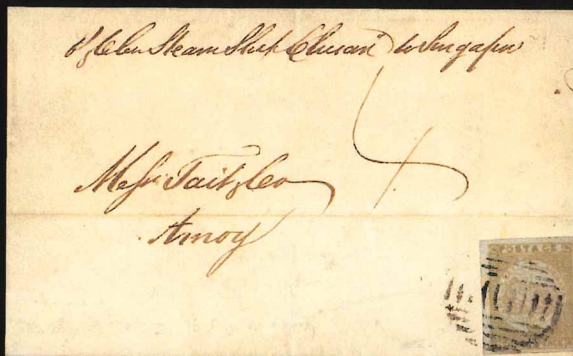 Steam Ship "Chusan" to Singapore
4
Messrs Tait & Co
Amoy
POSTAGE